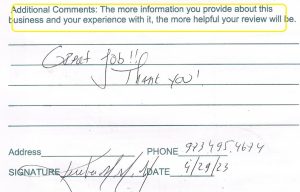 Additional Comments: The more information you provide about this
business and your experience with it, the more helpful your review will be.
Great Job!!
Thank you!
Address PHONE 973 495.4674
SIGNATURE DATE 4/29/23